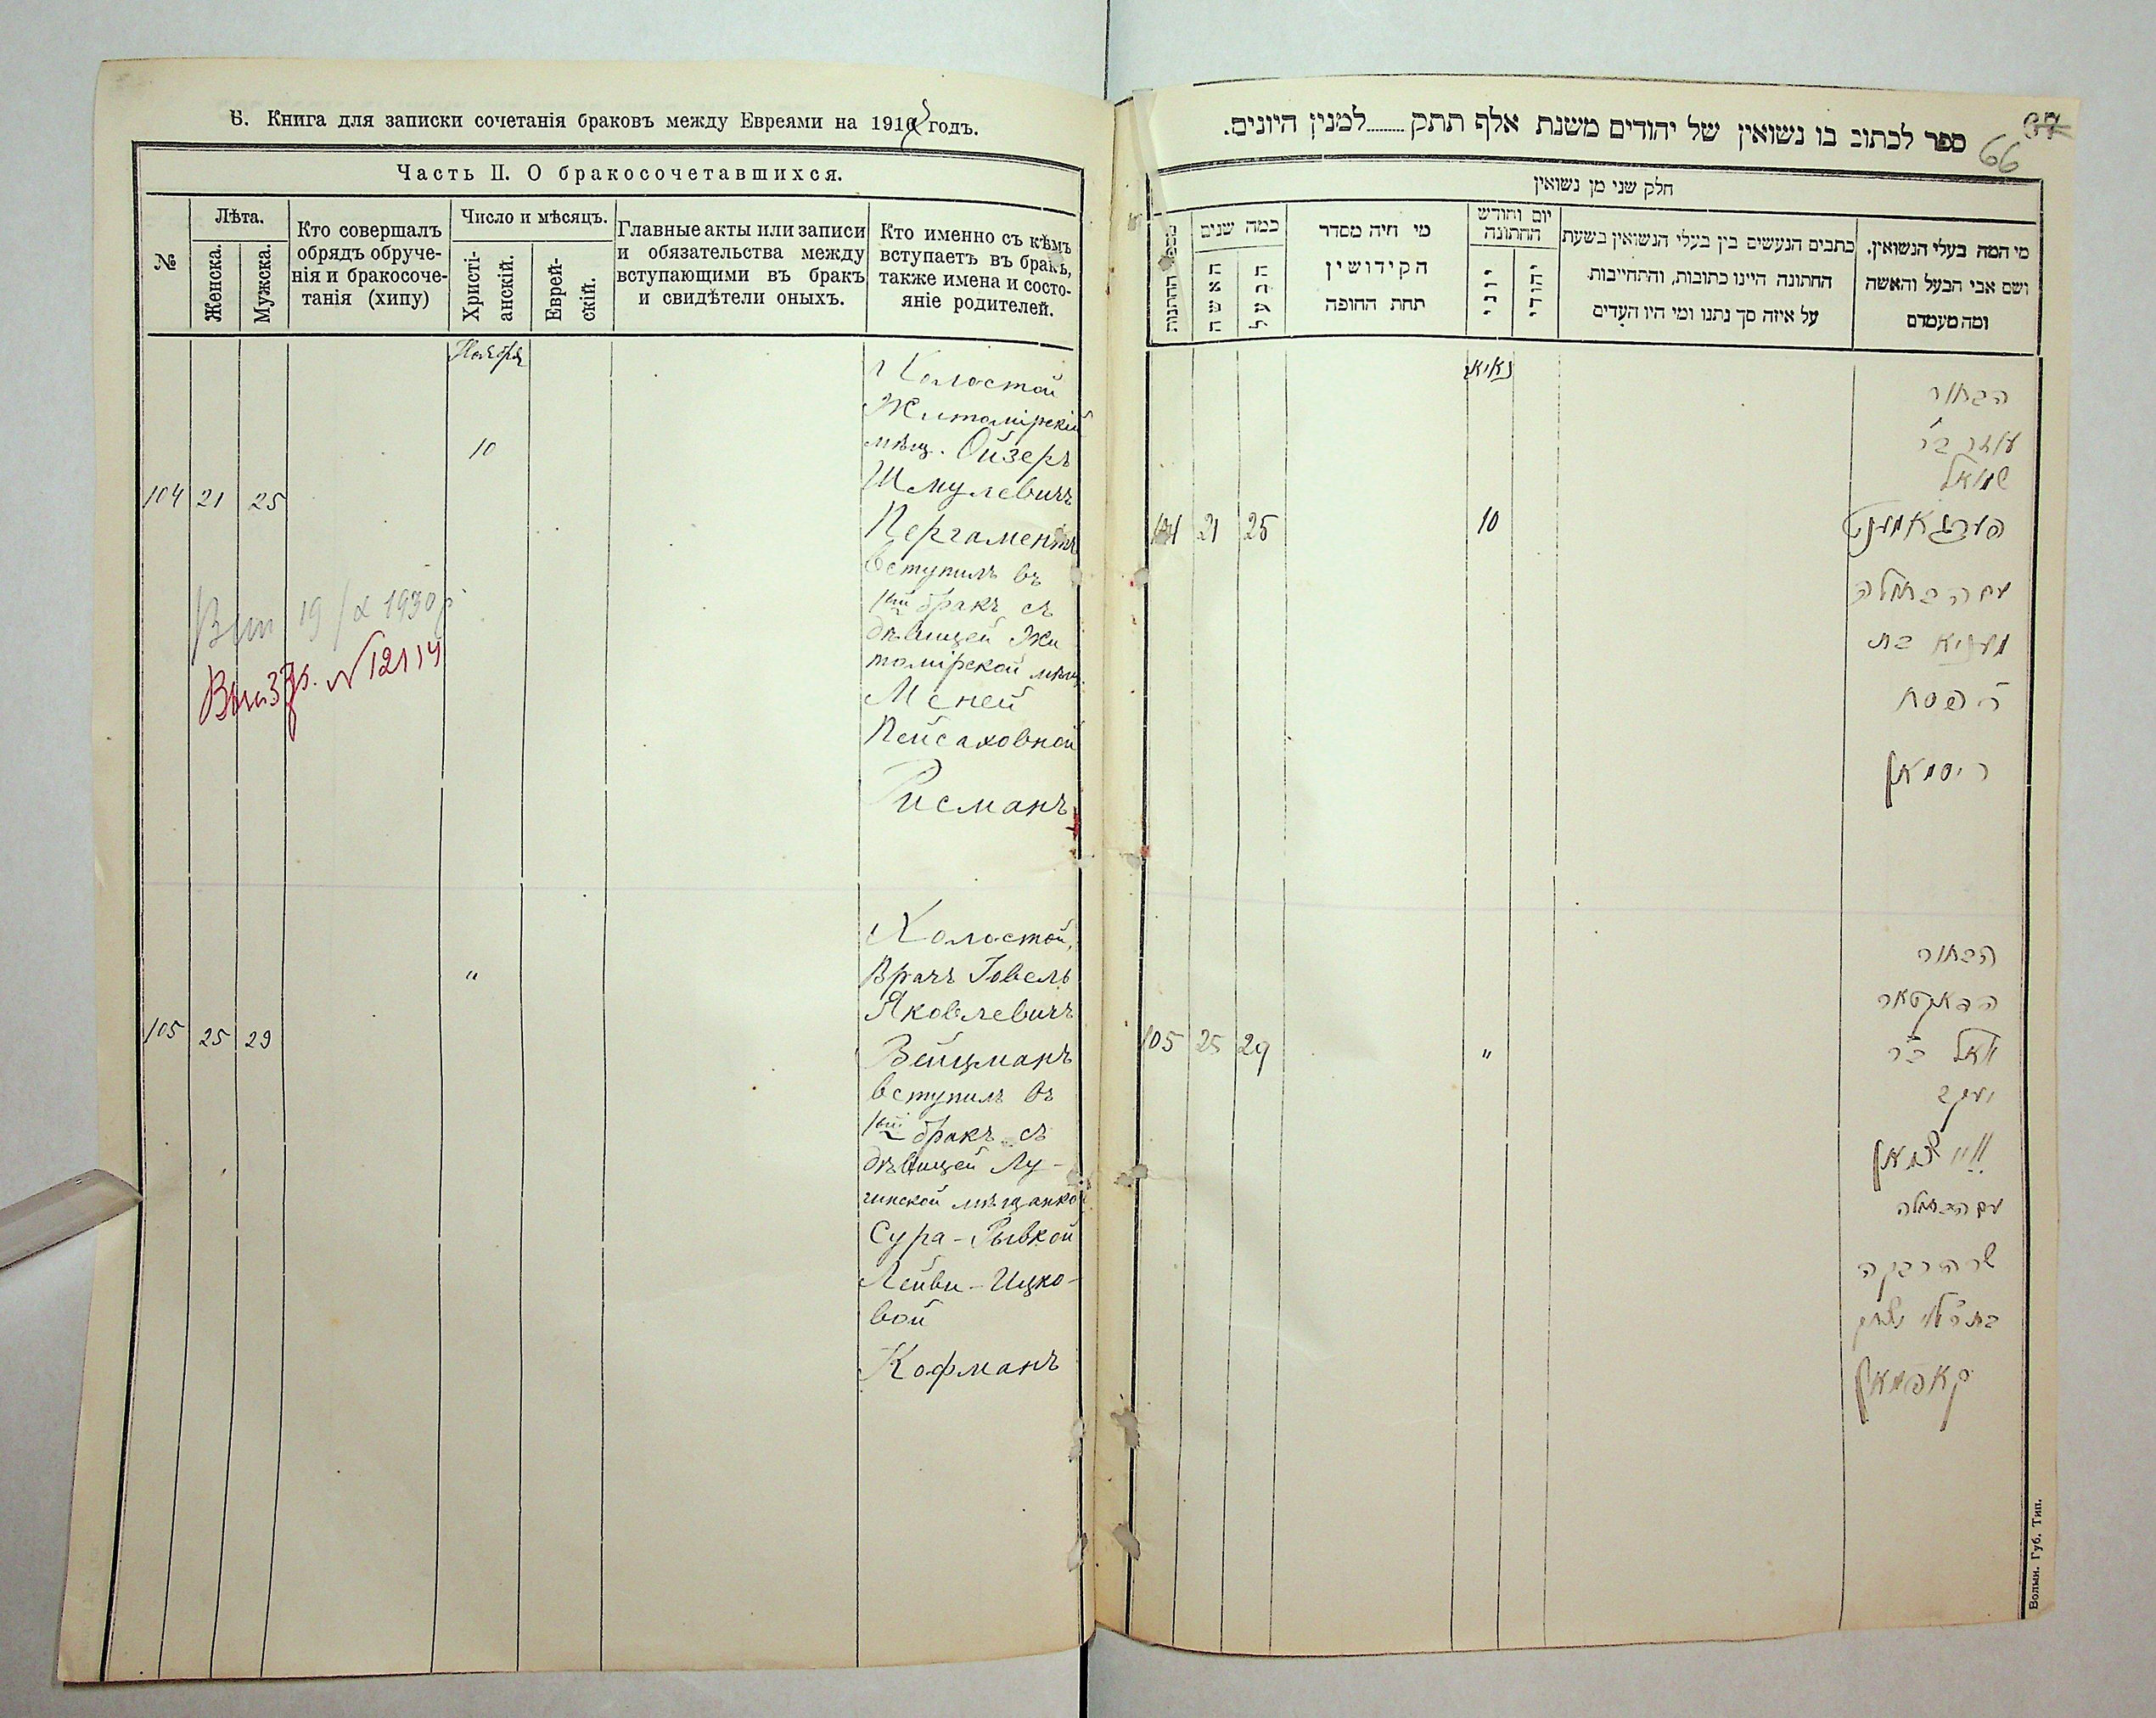 Б. Книга для записки сочетанія браковъ между Евреями на 191 годъ.
Часть II. О бракосочетавшихся.
№
Лѣта.
Женска.
Мужска.
Кто совершалъ
обрядъ обруче-
нія и бракосоче-
танія (хипу)
Число и мѣсяцъ.
Христі-
анскій.
Еврей-
скій.
Главные акты или записи
и обязательства между
вступающими въ бракъ
и свидѣтели оныхъ.
Кто именно съ кѣмъ
вступаетъ въ бракъ,
также имена и состо-
яніе родителей.
Ноября
10
104 21 25
Холостой
Житомірскій
мѣщ. Ойзеръ
Шмулевичъ
Пергаментъ
вступилъ въ
1ый бракъ съ
дѣвицей Жи
томірской мѣщ
Меней
Пейсаховной
Рисманъ
19/X 1930 р.
№ 12114
"
105 25 29
Холостой,
Врачъ Іовель
Яковлевичъ
Вейцманъ
вступилъ въ
1ый бракъ съ
дѣвицей Лу-
гинской мѣщанкой
Сура-Рывкой
Лейви-Ицко-
вой
Кофманъ
66
67
ספר לכתוב בו נשואין של יהודים משנת אלף תתק........למנין היונים.
חלק שני מן נשואין
מספר החתונות
כמה שנים
האשה
הבעל
מי היה מסדר
הקידושין
תחת החופה
יום וחודש
החתונה
יוני
יהודי
כתבים הנעשים בין בעלי הנשואין בשעת
החתונה היינו כתובות, והתחייבות
על איזה סך נתנו ומי היו העדים
מי המה בעלי הנשואין.
ושם אבי הבעל והאשה
ומה מעמדם
104 21 25 10
הבחור
עוזר ב״ר
שמואל
פערגאמענט
עם הבתולה
מעניא בת
ר׳ פסח
ריסמאן
105 25 29 "
הבחור
הדאקטאר
יואל ב״ר
יעקב
ווייצמאן
עם הבתולה
שרה רבקה
בת ר׳ לוי יצחק
קאפמאן
Волын. Губ. Тип.